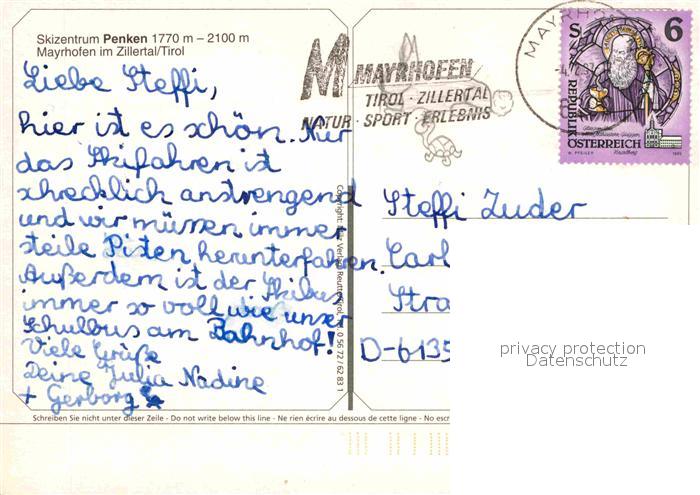 Skizentrum Penken 1770 m – 2100 m
Mayrhofen im Zillertal/Tirol
Liebe Steffi,
hier ist es schön. Nur
das Skifahren ist
schrecklich anstrengend
und wir müssen immer
steile Pisten herunterfahren.
Außerdem ist der Skibus
immer so voll wie unser
Schulbus am Bahnhof!
Viele Grüße
Deine Julia Nadine
+ Gerborg
Schreiben Sie nicht unter dieser Zeile - Do not write below this line - Ne rien écrire au dessous de cette ligne - Non
M MAYRHOFEN
TIROL · ZILLERTAL
NATUR · SPORT · ERLEBNIS
MAYRHO
S 6
REPUBLIK
ÖSTERREICH
Steffi Zuder
Carl
Stra
D-6135
Copyright: Verlag Reutte/Tirol, 0 56 72 / 62 83 1
privacy protection
Datenschutz